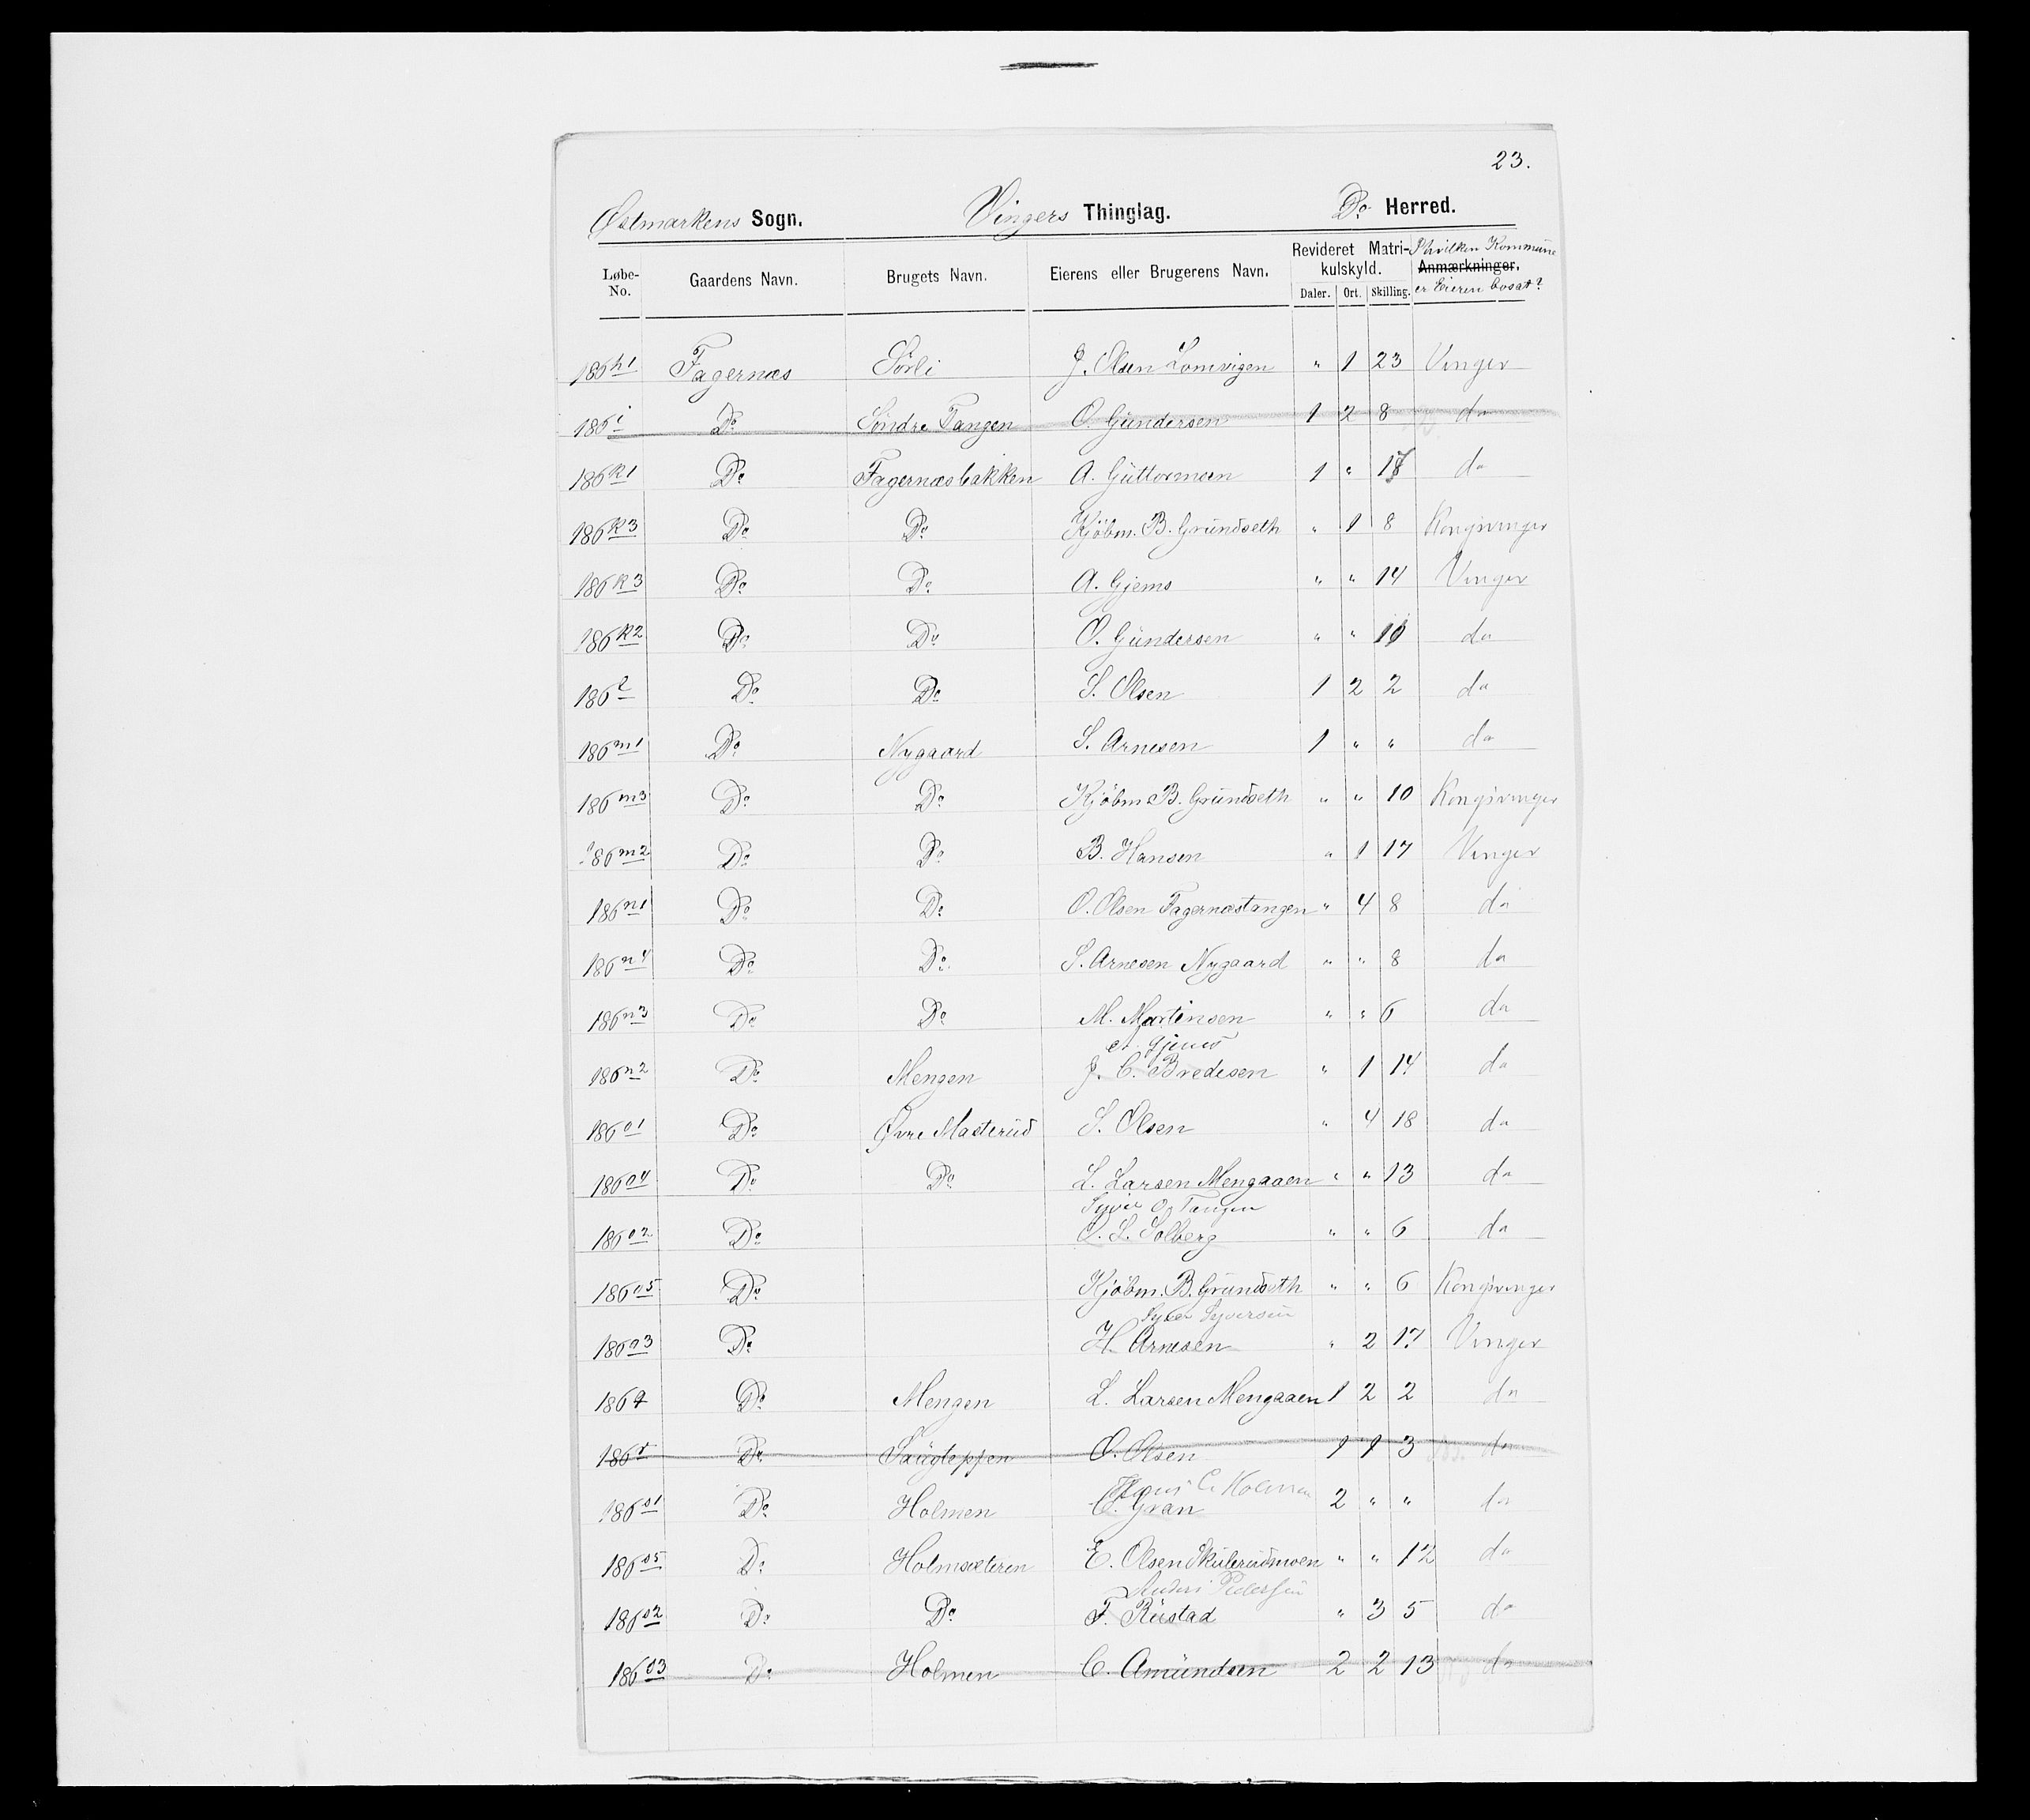 23.
Østmarkens Sogn. Vingers Thinglag. Do Herred.
Løbe-No. Gaardens Navn. Brugets Navn. Eierens eller Brugerens Navn. Revideret Matrikulskyld. Daler. Ort. Skilling. I hvilken Kommune Anmærkninger. er Eieren bosat?
186 h1 Fagernæs Sörli J. Olsen Lomvigen " 1 23 Vinger
186 i Do Söndre Tangen O. Gundersen 1 2 8 do
186 k1 Do Fagernæsbakken A. Guttormsen 1 " do
186 k3 Do Do Kjöbm. B. Grundseth " 1 8 Kongsvinger
186 k3 Do Do A. Gjems " " 14 Vinger
186 k2 Do Do O. Gundersen " " do
186 l Do Do S. Olsen 1 2 2 do
186 m1 Do Nygaard S. Arnesen 1 " " do
186 m3 Do Do Kjöbm. B. Grundseth " " 10 Kongsvinger
186 m2 Do Do B. Hansen " 1 17 Vinger
186 n1 Do Do O. Olsen Fagernæstangen " 4 8 do
186 n4 Do Do S. Arnesen Nygaard " " 8 do
186 n3 Do Do M. Martinsen " " 6 do
A. Gjems
186 n2 Do Mengen J. C. Bredesen " 1 14 do
186 o1 Do Øvre Masterud S. Olsen " 4 18 do
186 o4 Do Do L. Larsen Mengaaen " " 13 do
Syver O. Tangen
186 o2 Do O. L. Solberg " " 6 do
186 o5 Do Kjöbm. B. Grundseth " " 6 Kongsvinger
Syver Syversen
186 o3 Do H. Arnesen " 2 17 Vinger
186 q Do Mengen L. Larsen Mengaaen 1 2 2 do
186 r Do O. Olsen 1 1 3 do
C. Holmen
186 s1 Do Holmen C. Gran 2 " " do
186 s5 Do Holmsæteren E. Olsen Skulerudmoen " " 12 do
Anders Pedersen
186 s2 Do Do F. Rustad " 3 5 do
186 s3 Do Holmen C. Amundsen 2 2 13 do